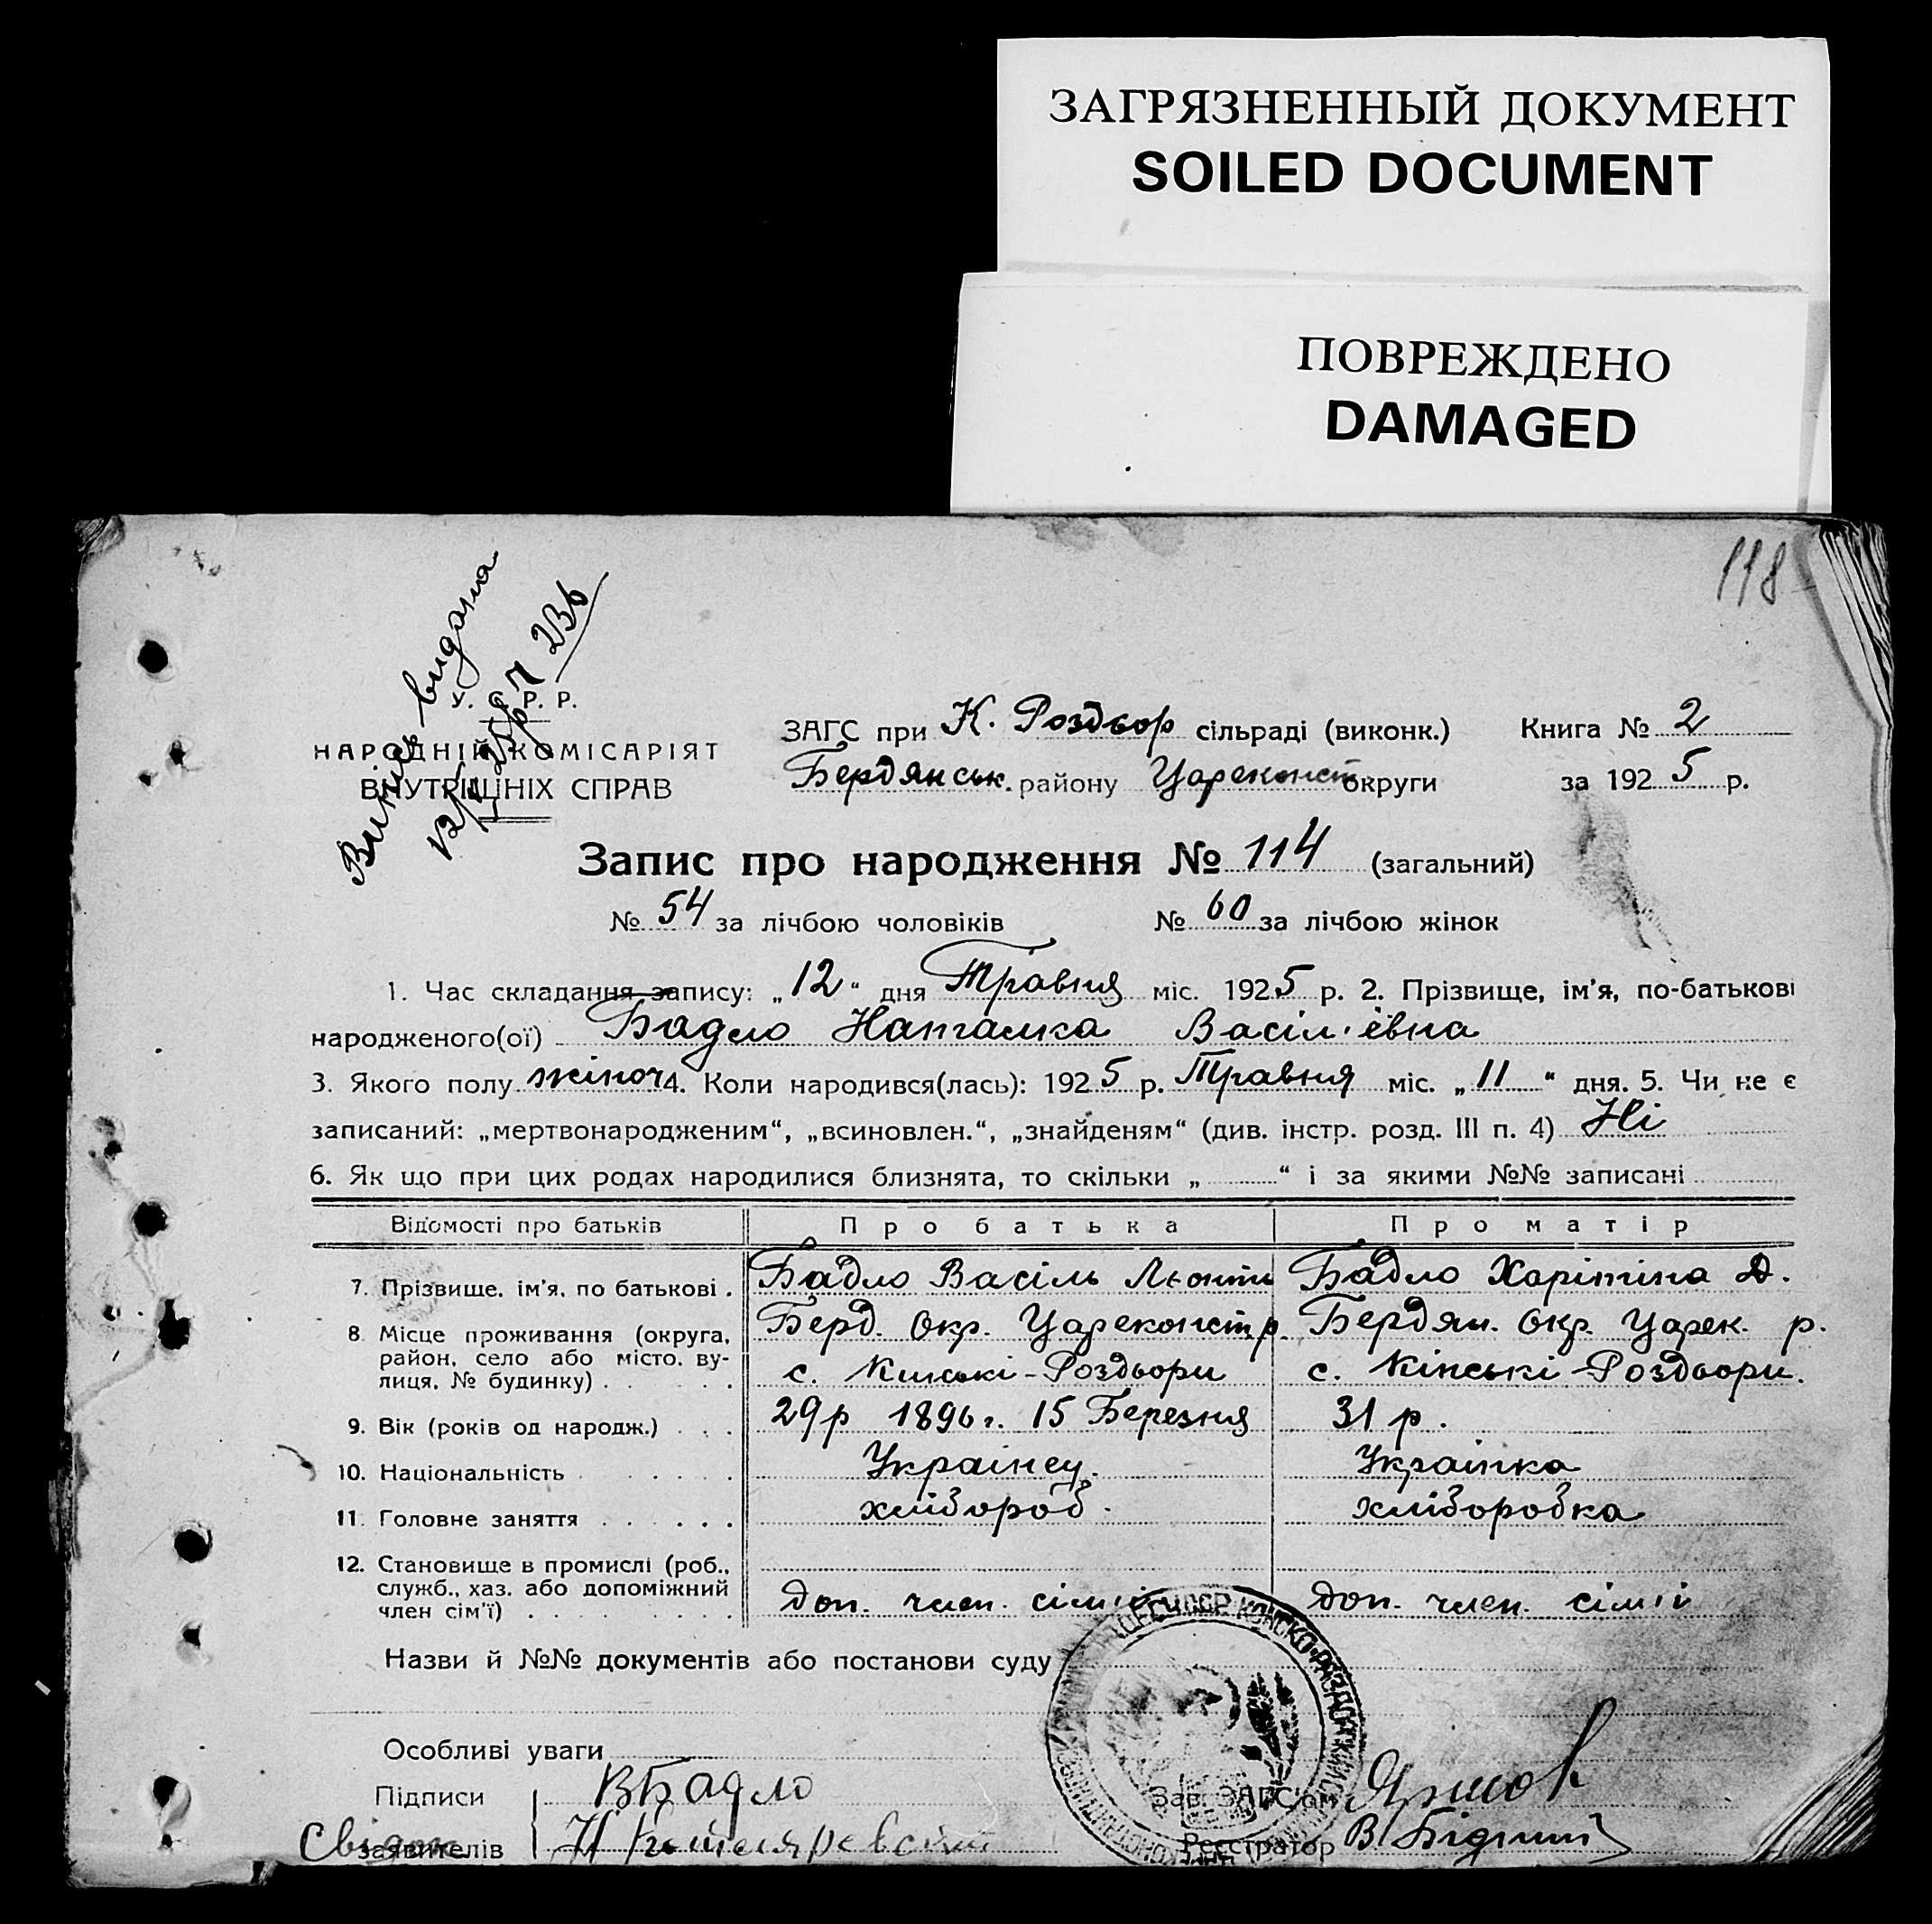 ЗАГРЯЗНЕННЫЙ ДОКУМЕНТ
SOILED DOCUMENT
ПОВРЕЖДЕНО
DAMAGED
118
Витяг видана
236
У. С. Р. Р.
НАРОДНІЙ КОМІСАРІЯТ
ВНУТРІШНІХ СПРАВ
ЗАГС при К. Роздьор сільраді (виконк.) Книга № 2
Бердянськ. району Цареконст округи за 1925 р.
Запис про народження № 114 (загальний)
№ 54 за лічбою чоловіків № 60 за лічбою жінок
1. Час складання запису: „12“ дня Травня міс. 1925 р. 2. Прізвище, ім'я, по-батькові
народженого(ої) Бадло Наталка Васіл'евна
3. Якого полу жіноч 4. Коли народився(лась): 1925 р. Травня міс. „11“ дня. 5. Чи не є
записаний: „мертвонародженим“, „всиновлен.“, „знайденям“ (див. інстр. розд. III п. 4) Ні
6. Як що при цих родах народилися близнята, то скільки „ “ і за якими №№ записані
Відомості про батьків Про батька Про матір
7. Прізвище, ім'я, по батькові . Бадло Васіль Леонти Бадло Харітіна Д.
8. Місце проживання (округа, район, село або місто, вулиця, № будинку) . Берд. Окр. Цареконст р. Бердян. Окр. Царек. р.
с. Кінські-Роздьори с. Кінські-Роздьори.
9. Вік (років од народж.) . . . 29 р 1896 г. 15 Березня 31 р.
10. Національність Украінец. Украінка
11. Головне заняття хлібороб. хлібопобка
12. Становище в промислі (роб., служб., хаз. або допоміжний член сім'ї) доп. член. сімії доп. член. сімії
Назви й №№ документів або постанови суду
Особливі уваги
Підписи ВБадло Зав. ЗАГС'ом
заявителів Реєстратор В.